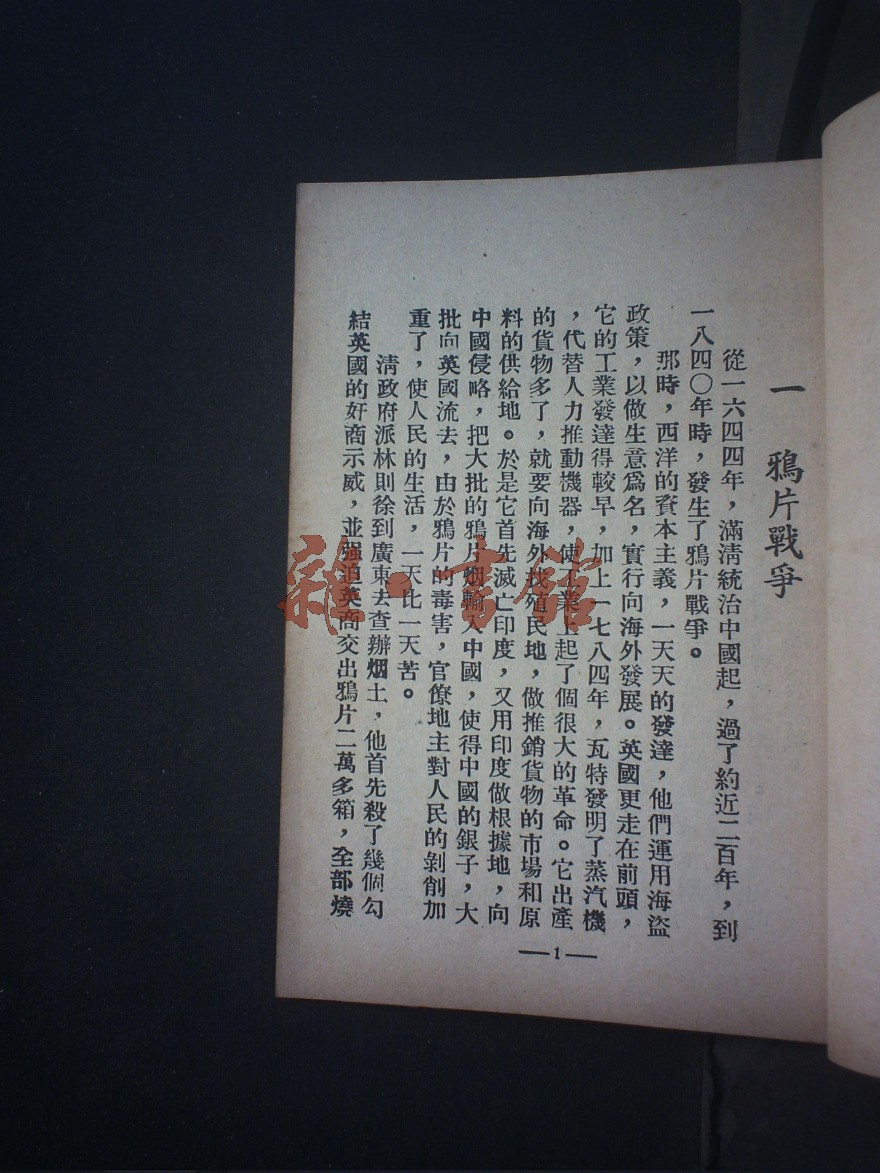 一　鴉片戰爭
從一六四四年，滿淸統治中國起，過了約近二百年，到
一八四〇年時，發生了鴉片戰爭。
那時，西洋的資本主義，一天天的發達，他們運用海盜
政策，以做生意爲名，實行向海外發展。英國更走在前頭，
它的工業發達得較早，加上一七八四年，瓦特發明了蒸汽機
，代替人力推動機器，使工業上起了個很大的革命。它出產
的貨物多了，就要向海外找殖民地，做推銷貨物的市場和原
料的供給地。於是它首先滅亡印度，又用印度做根據地，向
中國侵略，把大批的鴉片烟輸入中國，使得中國的銀子，大
批向英國流去，由於鴉片的毒害，官僚地主對人民的剝削加
重了，使人民的生活，一天比一天苦。
淸政府派林則徐到廣東去查辦烟土，他首先殺了幾個勾
結英國的奸商示威，並强迫英商交出鴉片二萬多箱，全部燒
—1—
雜·書館